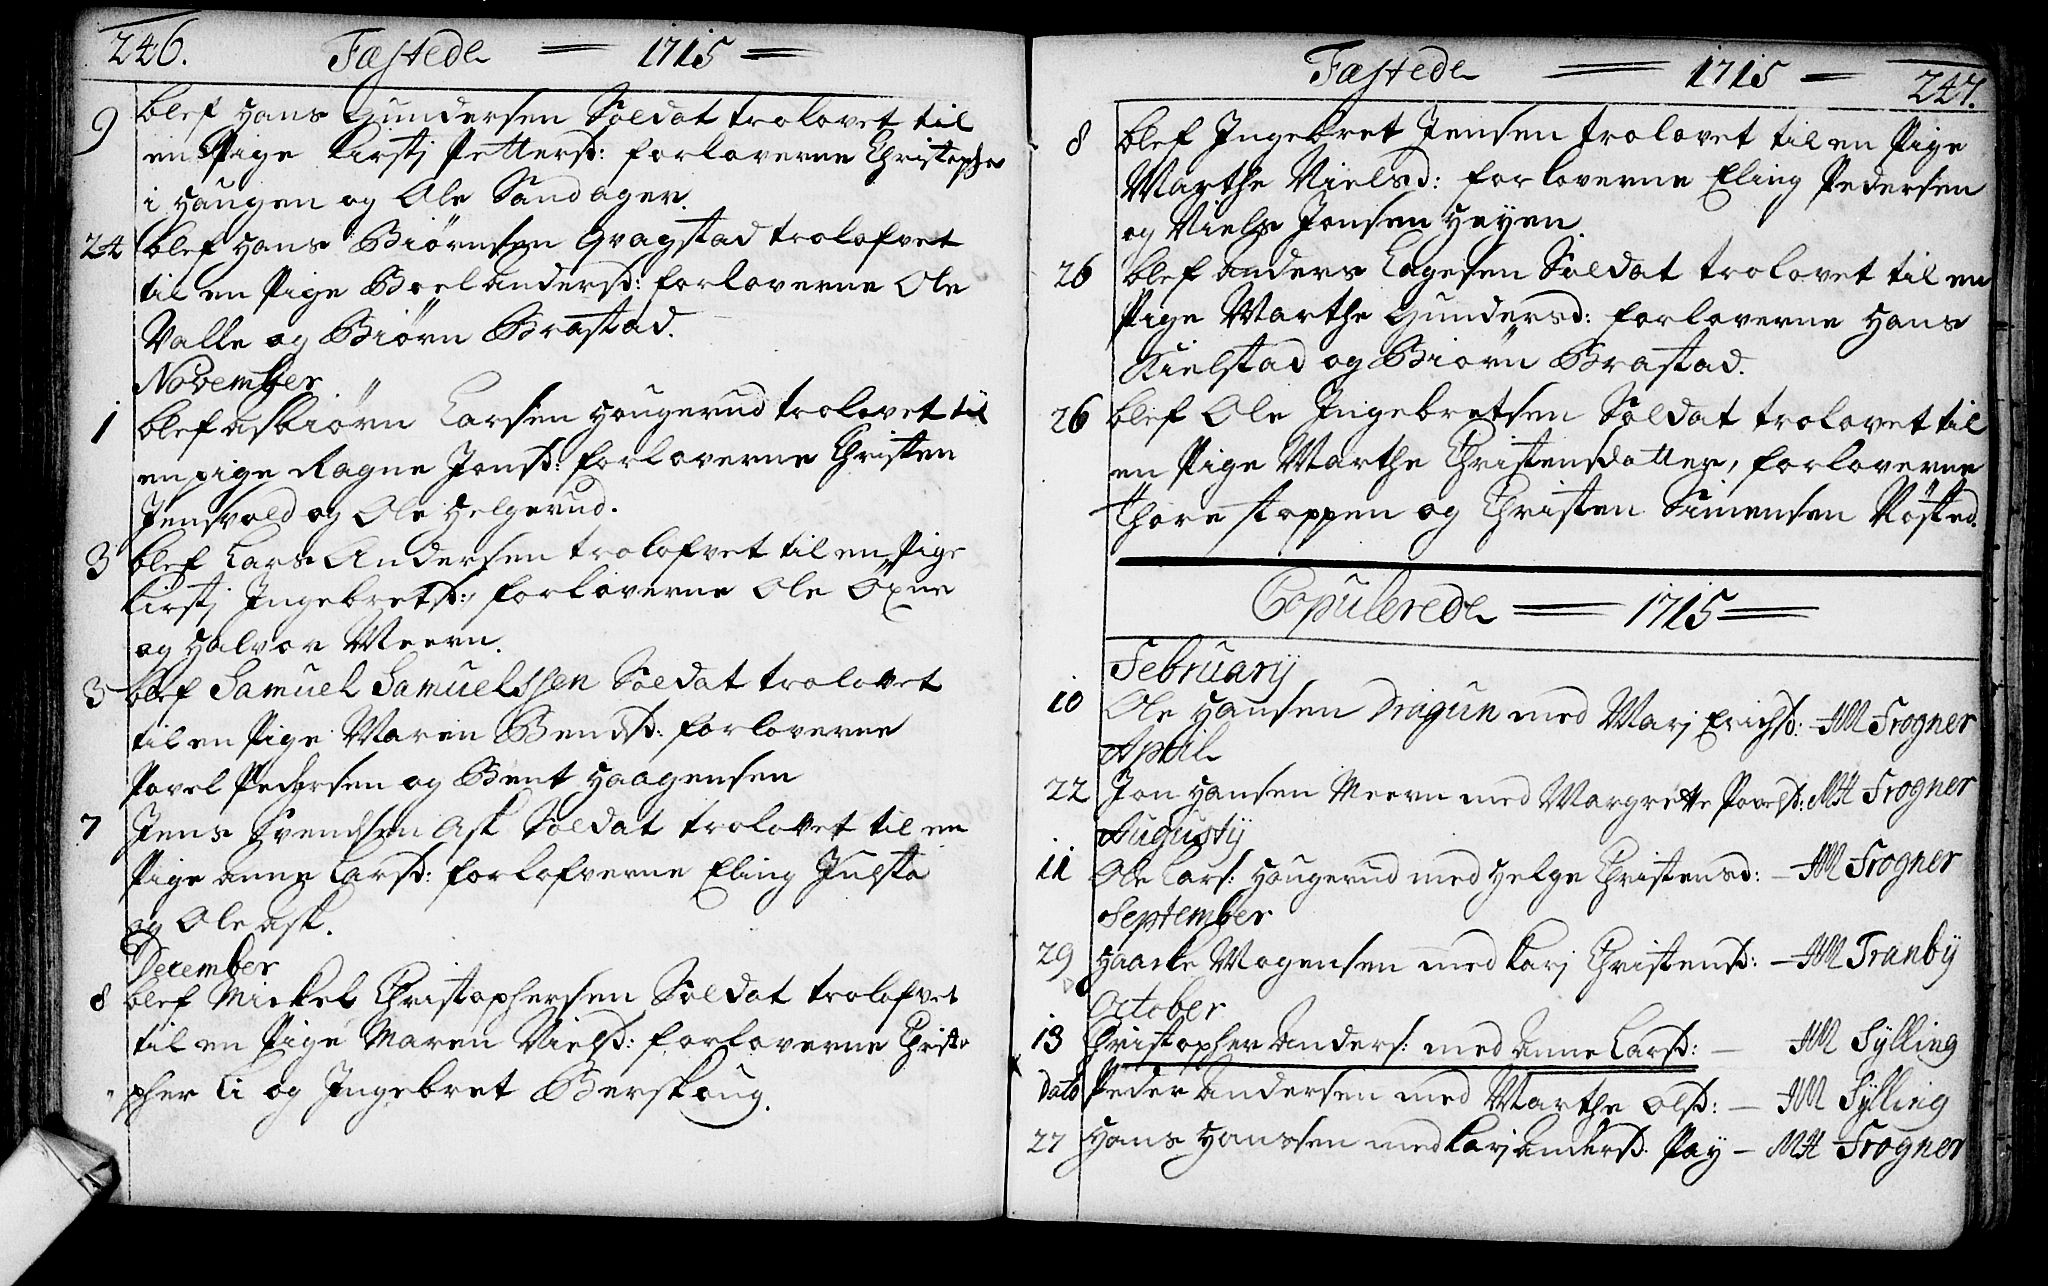 246. Fæstede 1715
9 blef Hans Gundersen Soldat trolovet til
en Pige Kirstj Pettersd: forloverne Christopher
i Haugen og Ole Sandager.
24 blef Hans Biörnsen Gragstad trolofvet
til en Pige Boel Andersd: forloverne Ole
Valle og Biörn Brastad.
November
1 blef Asbiörn Larsen Hougerud trolovet til
en pige Ragne Jonsd: forloverne Christen
Jensvold og Ole Helgerud.
3 blef Lars Andersen trolofvet til en Pige
Kirstj Ingebretsd: forloverne Ole Öxne
og Halvor Meern.
3 blef Samuel Samuelssen Soldat trolovet
til en Pige Maren Bendsd: forloverne
Povel Pedersen og Bent Haagensen
7 Jens Svendsen Ask Soldat trolovet til en
Pige Anne Larsd: forlofverne Eling Julsta
og Ole Ask.
December
8 blef Mickel Christophersen Soldat trolofvet
til en Pige Maren Nielsd: forloverne Christo
pher Li og Ingebret Berskoug.
Fæstede 1715 247.
8 blef Ingebret Jensen trolovet til en Pige
Marthe Nielsd: forloverne Eling Pedersen
og Niels Jonsen Høyen.
26 blef Anders Lagesen Soldat trolovet til en
Pige Marthe Gundersd: forloverne Hans
Kielstad og Biörn Brastad.
26 blef Ole Ingebretsen Soldat trolovet til
en Pige Marthe Christensdatter, forloverne
Thore stoppen og Christen Simensen Rösted.
Copulerede 1715
Februarij
10 Ole Hansen Dragun med Marj Erichsd: HM Frogner
April
22 Jon Hansen Meern med Margrette Povelsd: MH Frogner
Augustij
11 Ole Lars: Hougerud med Helge Christensd: HM Frogner
September
29 Haacke Mogensen med Karj Christensd: HM Tranby
October
13 Christopher Anders: med Anne Larsd: HM Sylling
Dato Peder Andersen med Marthe Olsd: HM Sylling
27 Hans Hanssen med Karj Andersd. Pay MH Frogner